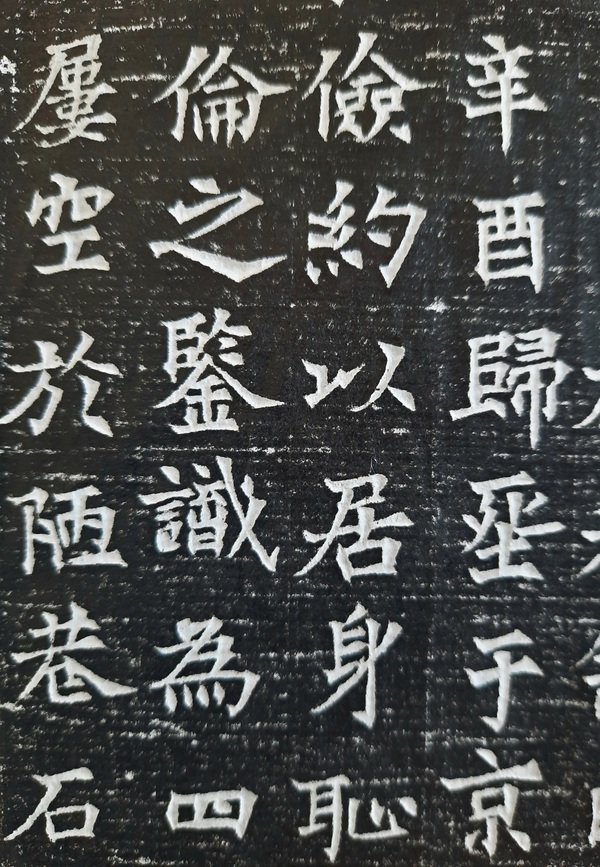 辛酉歸于京
儉約以居身恥
倫之鑒識為四
屢空於陋巷石